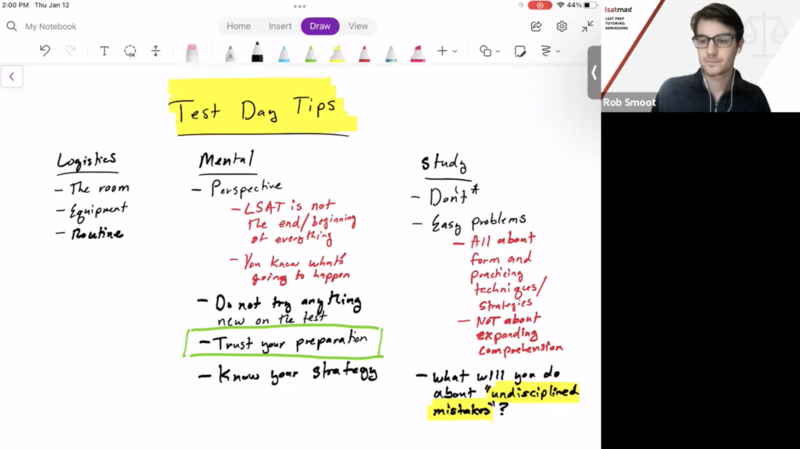 2:00 PM Thu Jan 12
44%
My Notebook
Home Insert Draw View
Test Day Tips
Logistics
- The room
- Equipment
- Routine
Mental
- Perspective
- LSAT is not
the end/beginning
of everything
- You know what's
going to happen
- Do not try anything
new on the test
- Trust your preparation
- Know your strategy
Study
- Don't*
- Easy problems
- All about
form and
practicing
techniques/
strategies
- NOT about
expanding
comprehension
- What will you do
about "undisciplined
mistakes"?
lsatmax
LSAT PREP
TUTORING
ADMISSIONS
Rob Smoot